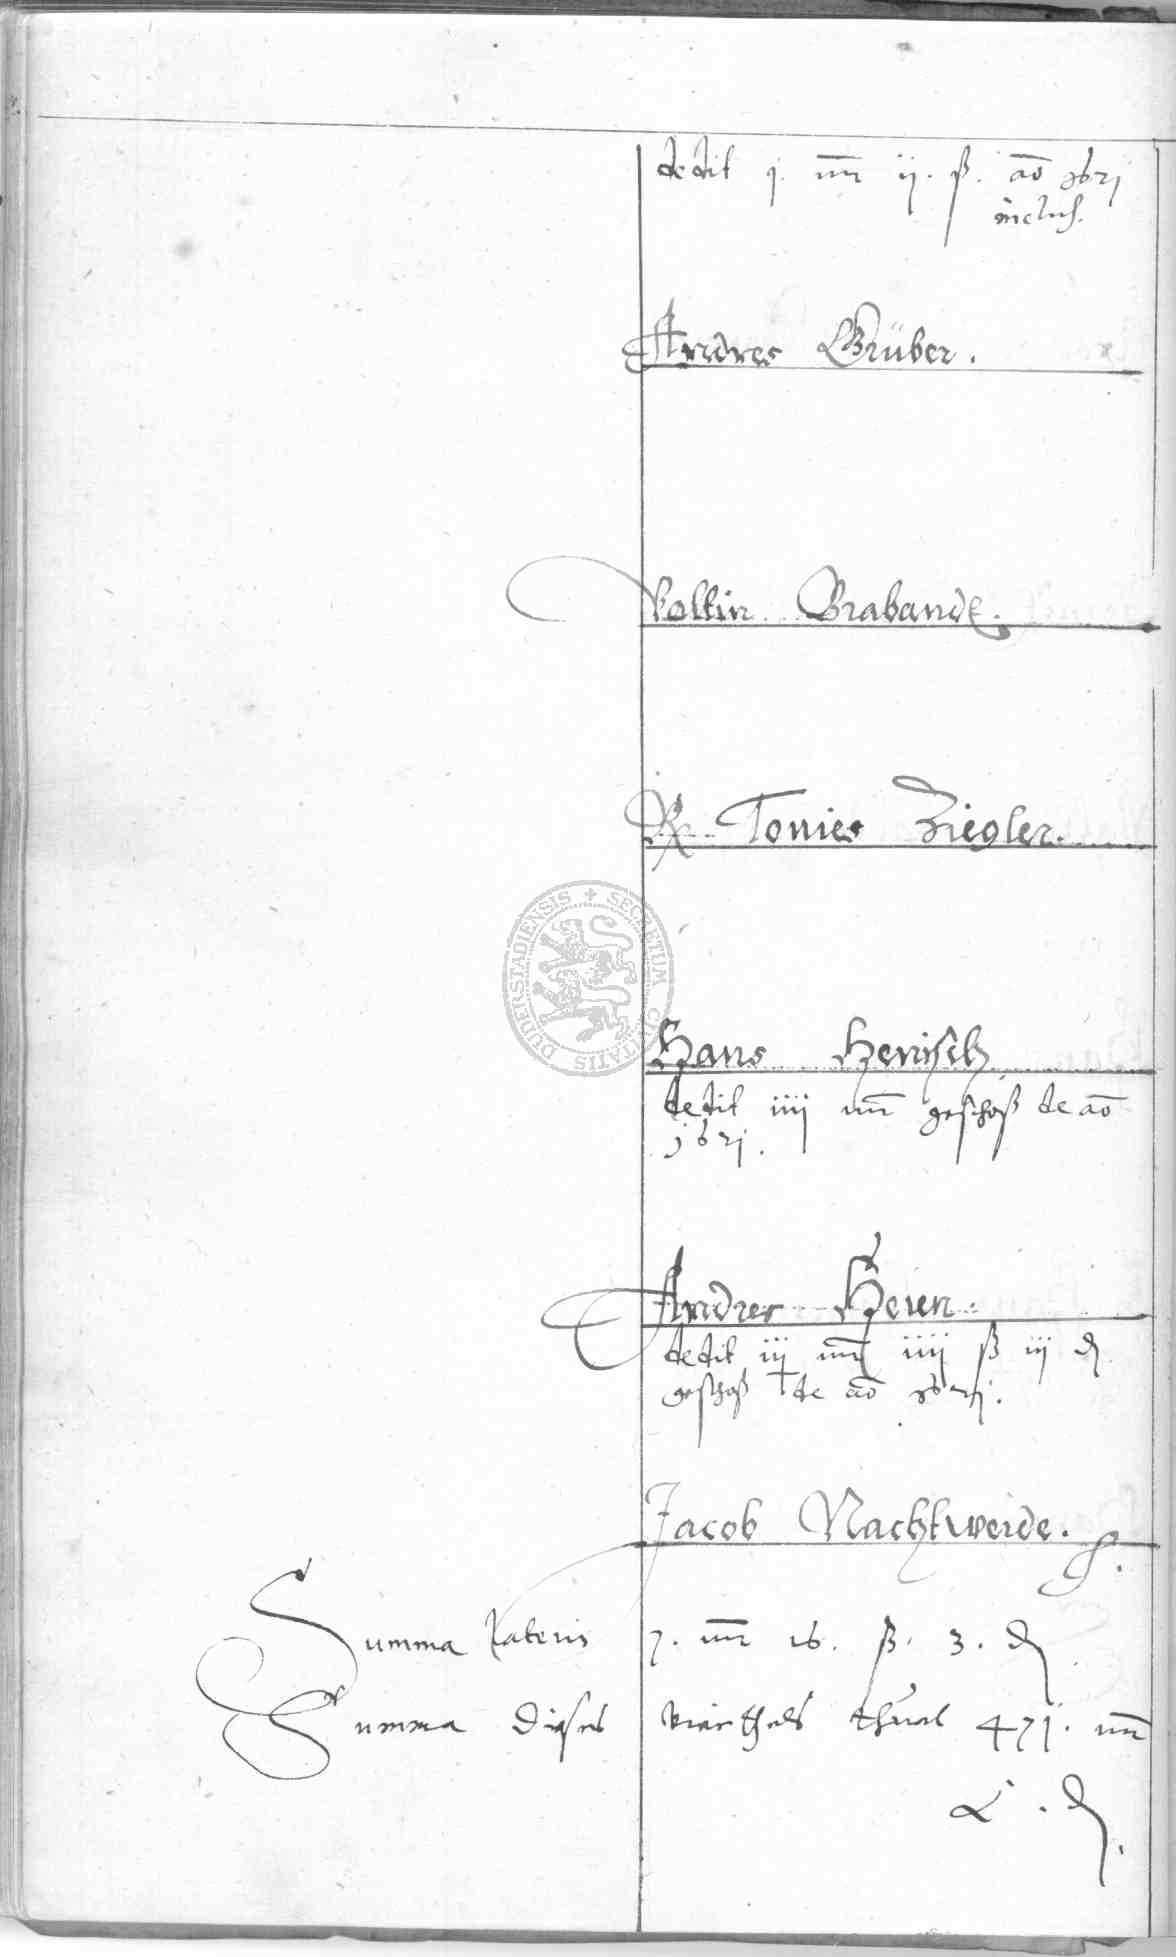 dedit j. mr ij. ß. ao 1621
inclus.
Andres Grüber.
Valtin Brabandt.
Tonies Ziegler.
SECRETUM CIVITATIS DUDERSTADIENSIS
Hans Henisch
dedit iiij mr geschoß de ao
1621.
Andres Heien.
dedit iij mr iiij ß iij d
geschoß de ao 1621.
Jacob Nachtweide.
Summa lateris 7. mr 16. ß. 3. d
Summa dieses vierthels thuet 471. mr
d.